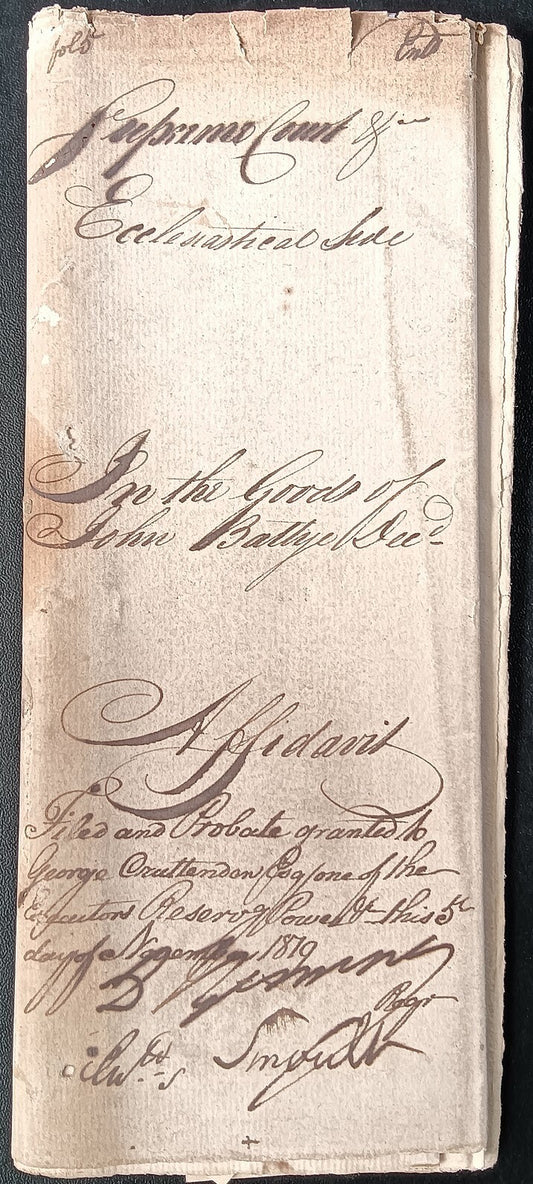 fol 5 Entd
Supreme Court &c
Ecclesiastical Side
In the Goods of
John Battye Decd
Affidavit
Filed and Probate granted to
George Cruttenden Esq one of the
Executors Reservg Power &c this 5th
day of November 1819
D
Regr